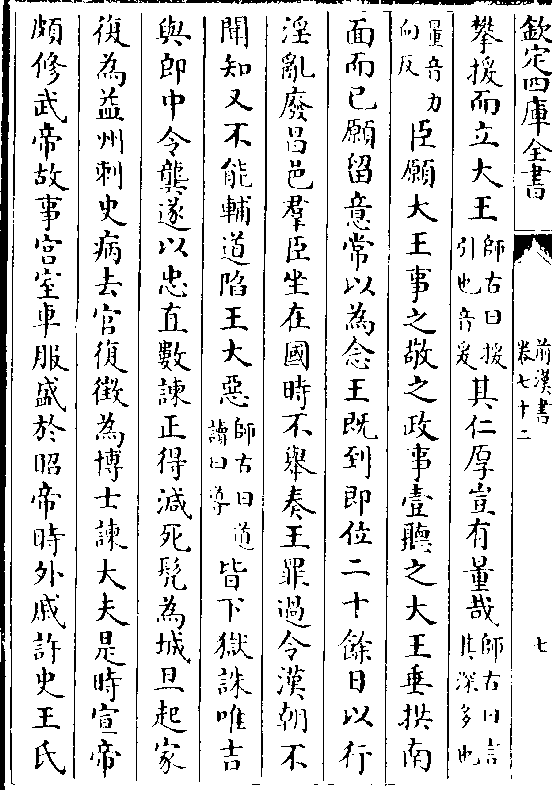 欽定四庫全書
前漢書
卷七十二
七
攀援而立大王師古曰援引也音爰其仁厚豈有量哉師古曰言其深多也
量音力向反臣願大王事之敬之政事壹聽之大王垂拱南
面而已願留意常以為念王既到即位二十餘日以行
淫亂廢昌邑羣臣坐在國時不舉奏王罪過令漢朝不
聞知又不能輔道陷王大惡師古曰道讀曰導皆下獄誅唯吉
與郎中令龔遂以忠直數諫正得減死髠為城旦起家
復為益州刺史病去官復徵為博士諫大夫是時宣帝
頗修武帝故事宮室車服盛於昭帝時外戚許史王氏